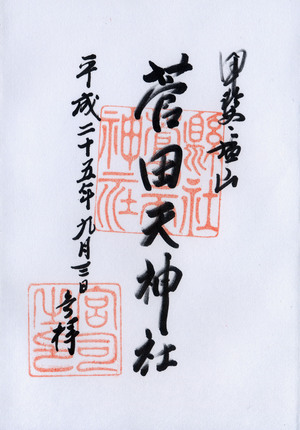 甲斐塩山
菅田天神社
平成二十五年九月三日
奉拝
縣社
菅田天
神社
宮司
之印